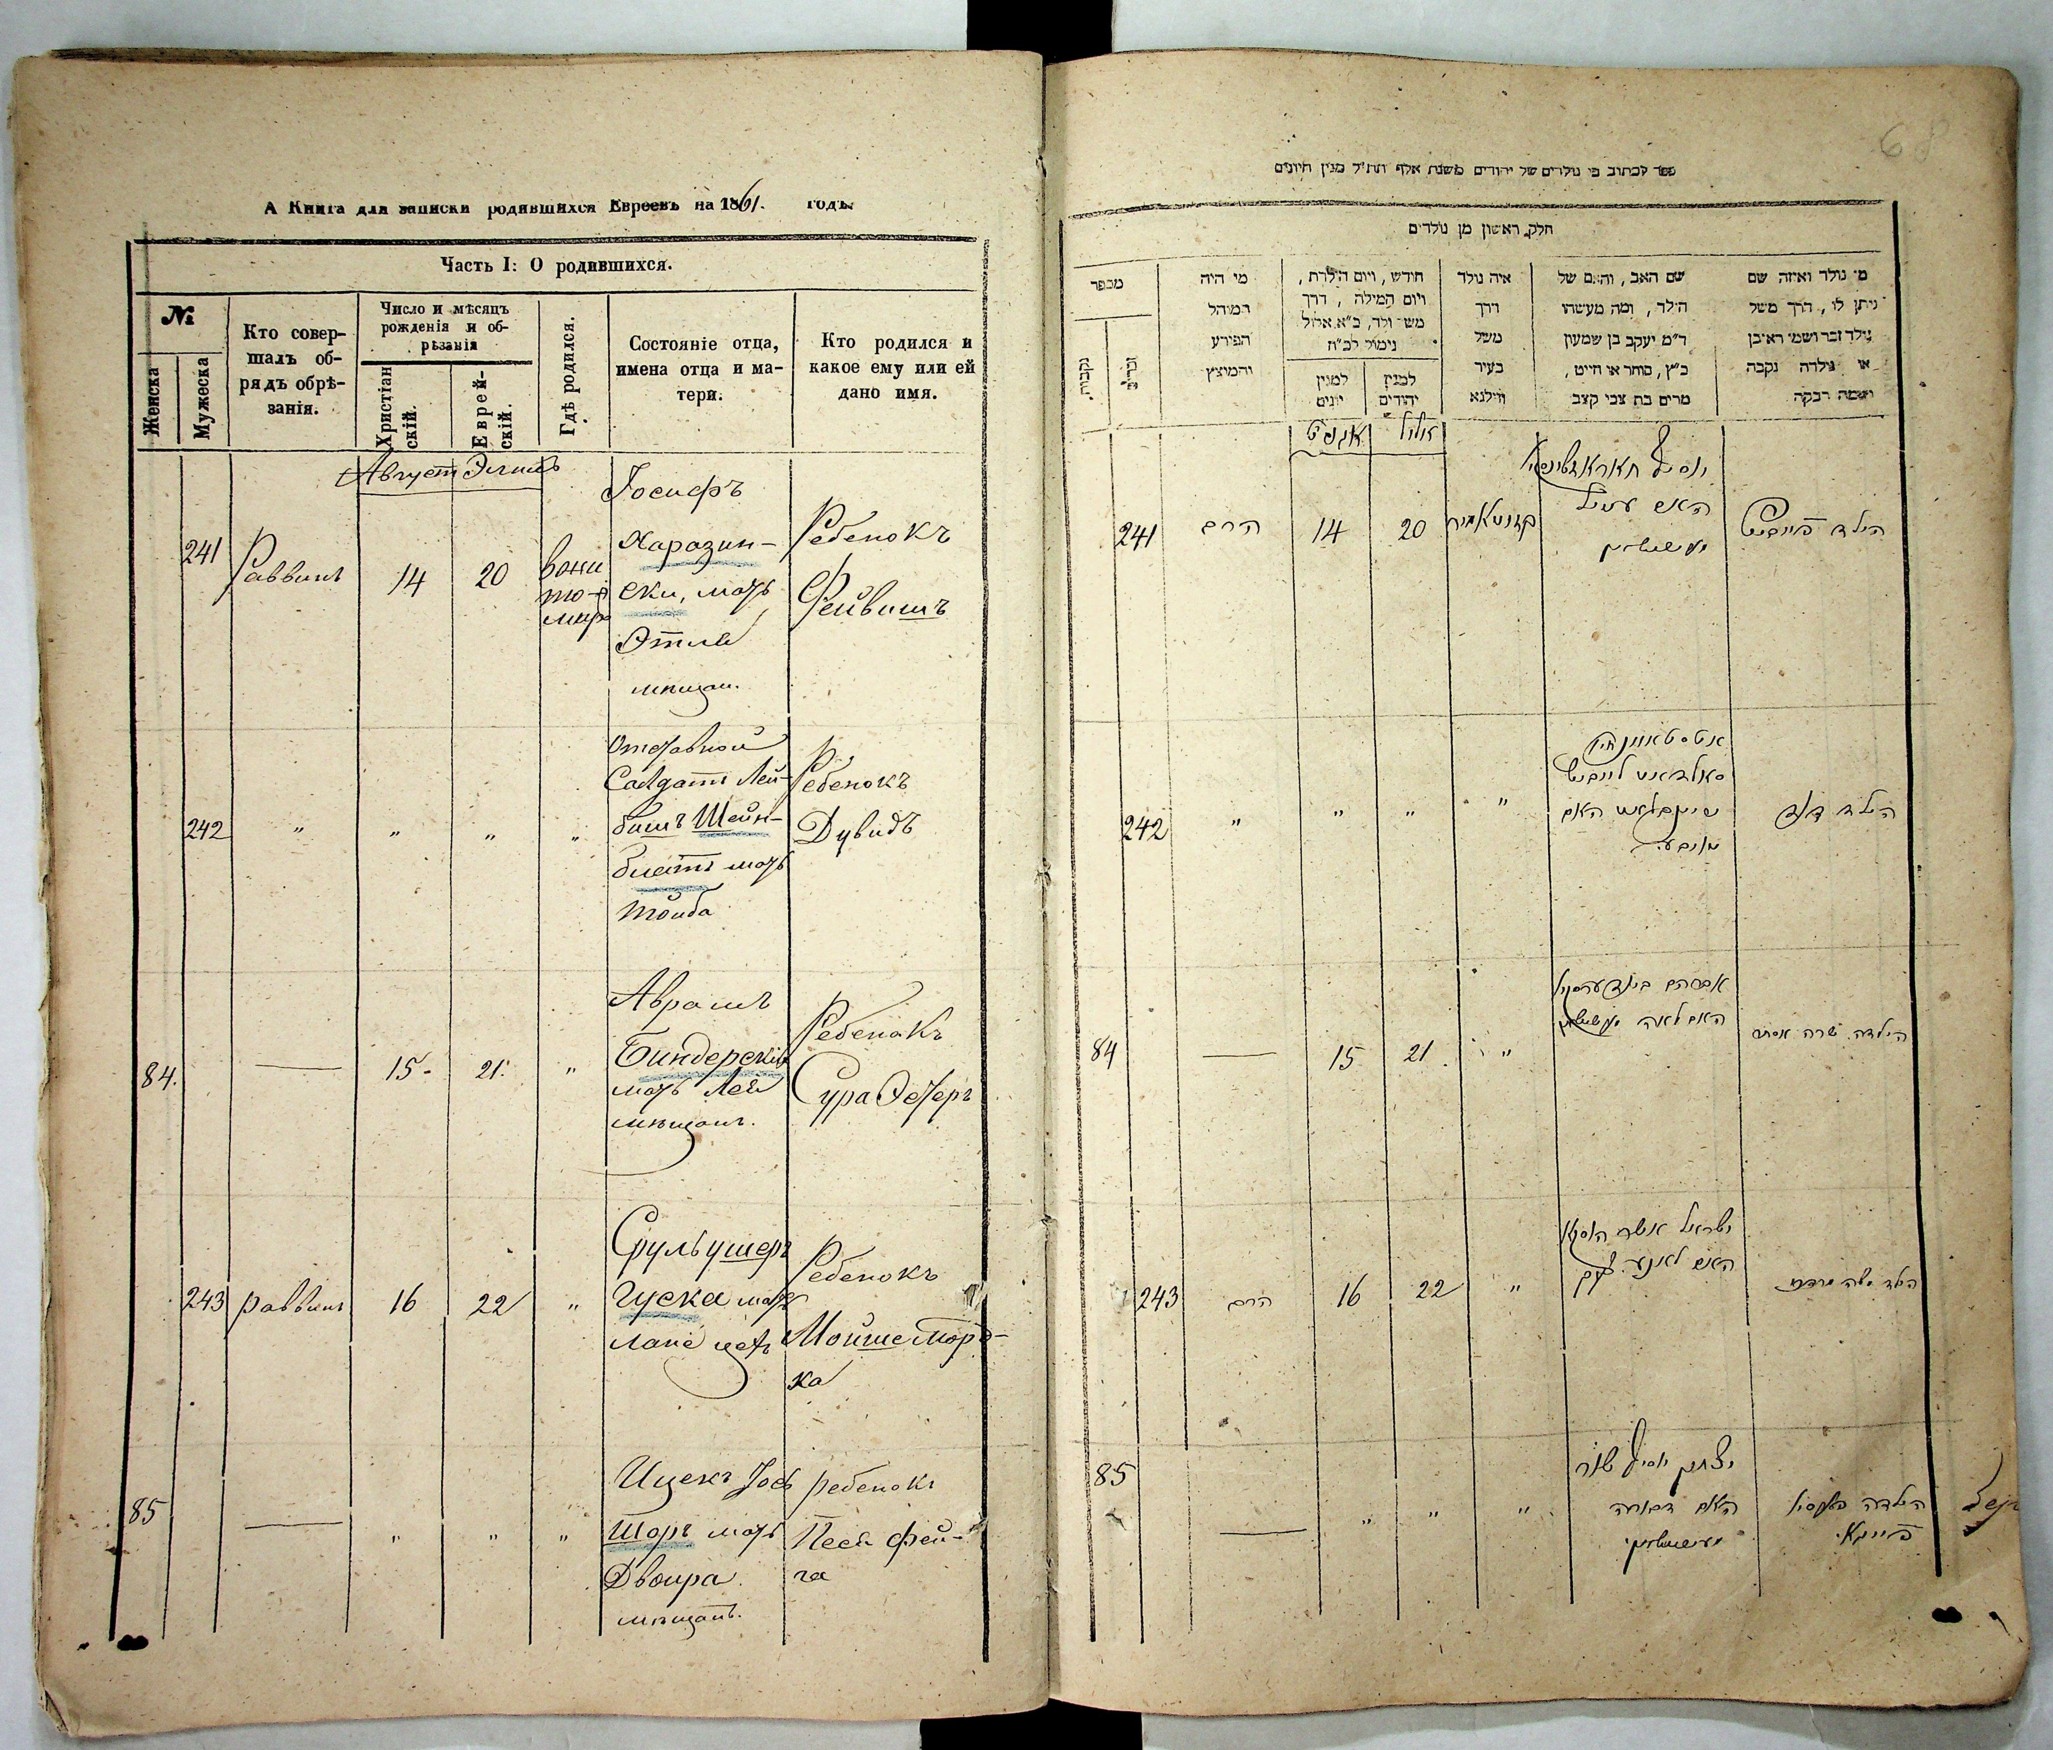 А Книга для записки родившихся Евреевъ на 1861. годъ.
Часть I: О родившихся.
№
Женска
Мужеска
Кто совер-
шалъ об-
рядъ обрѣ-
занія.
Число и мѣсяцъ
рожденія и об-
рѣзанія
Христіан
скій.
Еврей-
скій.
Гдѣ родился.
Состояніе отца,
имена отца и ма-
тери.
Кто родился и
какое ему или ей
дано имя.
Август
241
Раввинъ
14
20
Іосифъ
Харазин-
ски, мать
Этля
мѣщан.
Ребенокъ
Фейвишъ
242
"
"
"
"
Отставной
Салдатъ Лей-
бишъ Шейн-
блатъ мать
Тойба
Ребенокъ
Дувидъ
84.
15-
21.
"
Аврамъ
Биндерскій
мать Лея
мѣщанъ.
Ребенокъ
Сура Эстеръ
243
раввинъ
16
22
"
Срульушеръ
Гуска мать
Ребенокъ
Мойше Морд-
ка
85
"
"
"
Ицекъ Іос
Шоръ мать
Двойра
мѣщанъ.
ребенокъ
Песя Фей-
га
68
ספר לכתוב בו נולדים של יהודים משנת אלף תת״ל מנין היונים
חלק ראשון מן נולדים
מספר
נקבות
זכרים
מי היה
המוהל
הפורע
והמוצץ
חודש, ויום הולדת,
ויום המילה, דרך
משל נולד, כ״א אלול
נימול לכ״ח
למנין
יונים
למנין
יהודים
איה נולד
דרך
משל
בעיר
ווילנא
שם האב, והאם של
הילד, ומה מעשהו
ר״מ יעקב בן שמעון
כ״ץ, סוחר או חייט,
מרים בת צבי קצב
מי נולד ואיזה שם
ניתן לו, דרך משל
נולד זכר ושמו ראובן
או נולדה נקבה
ושמה רבקה
אויגוסט
אלול
241
הרב
14
20
האם עטיל
הילד פייבוש
242
"
"
"
"
האם
טויבע
הילד דוד
84
15
21
"
אברהם בינדערסקי
האם לאה
הילדה שרה אסתר
243
הרב
16
22
"
ישראל אשר הוסקא
הילד משה מרדכי
85
"
"
"
יצחק יוסיף שור
האם דבורה
הילדה פעסיל
פייגא